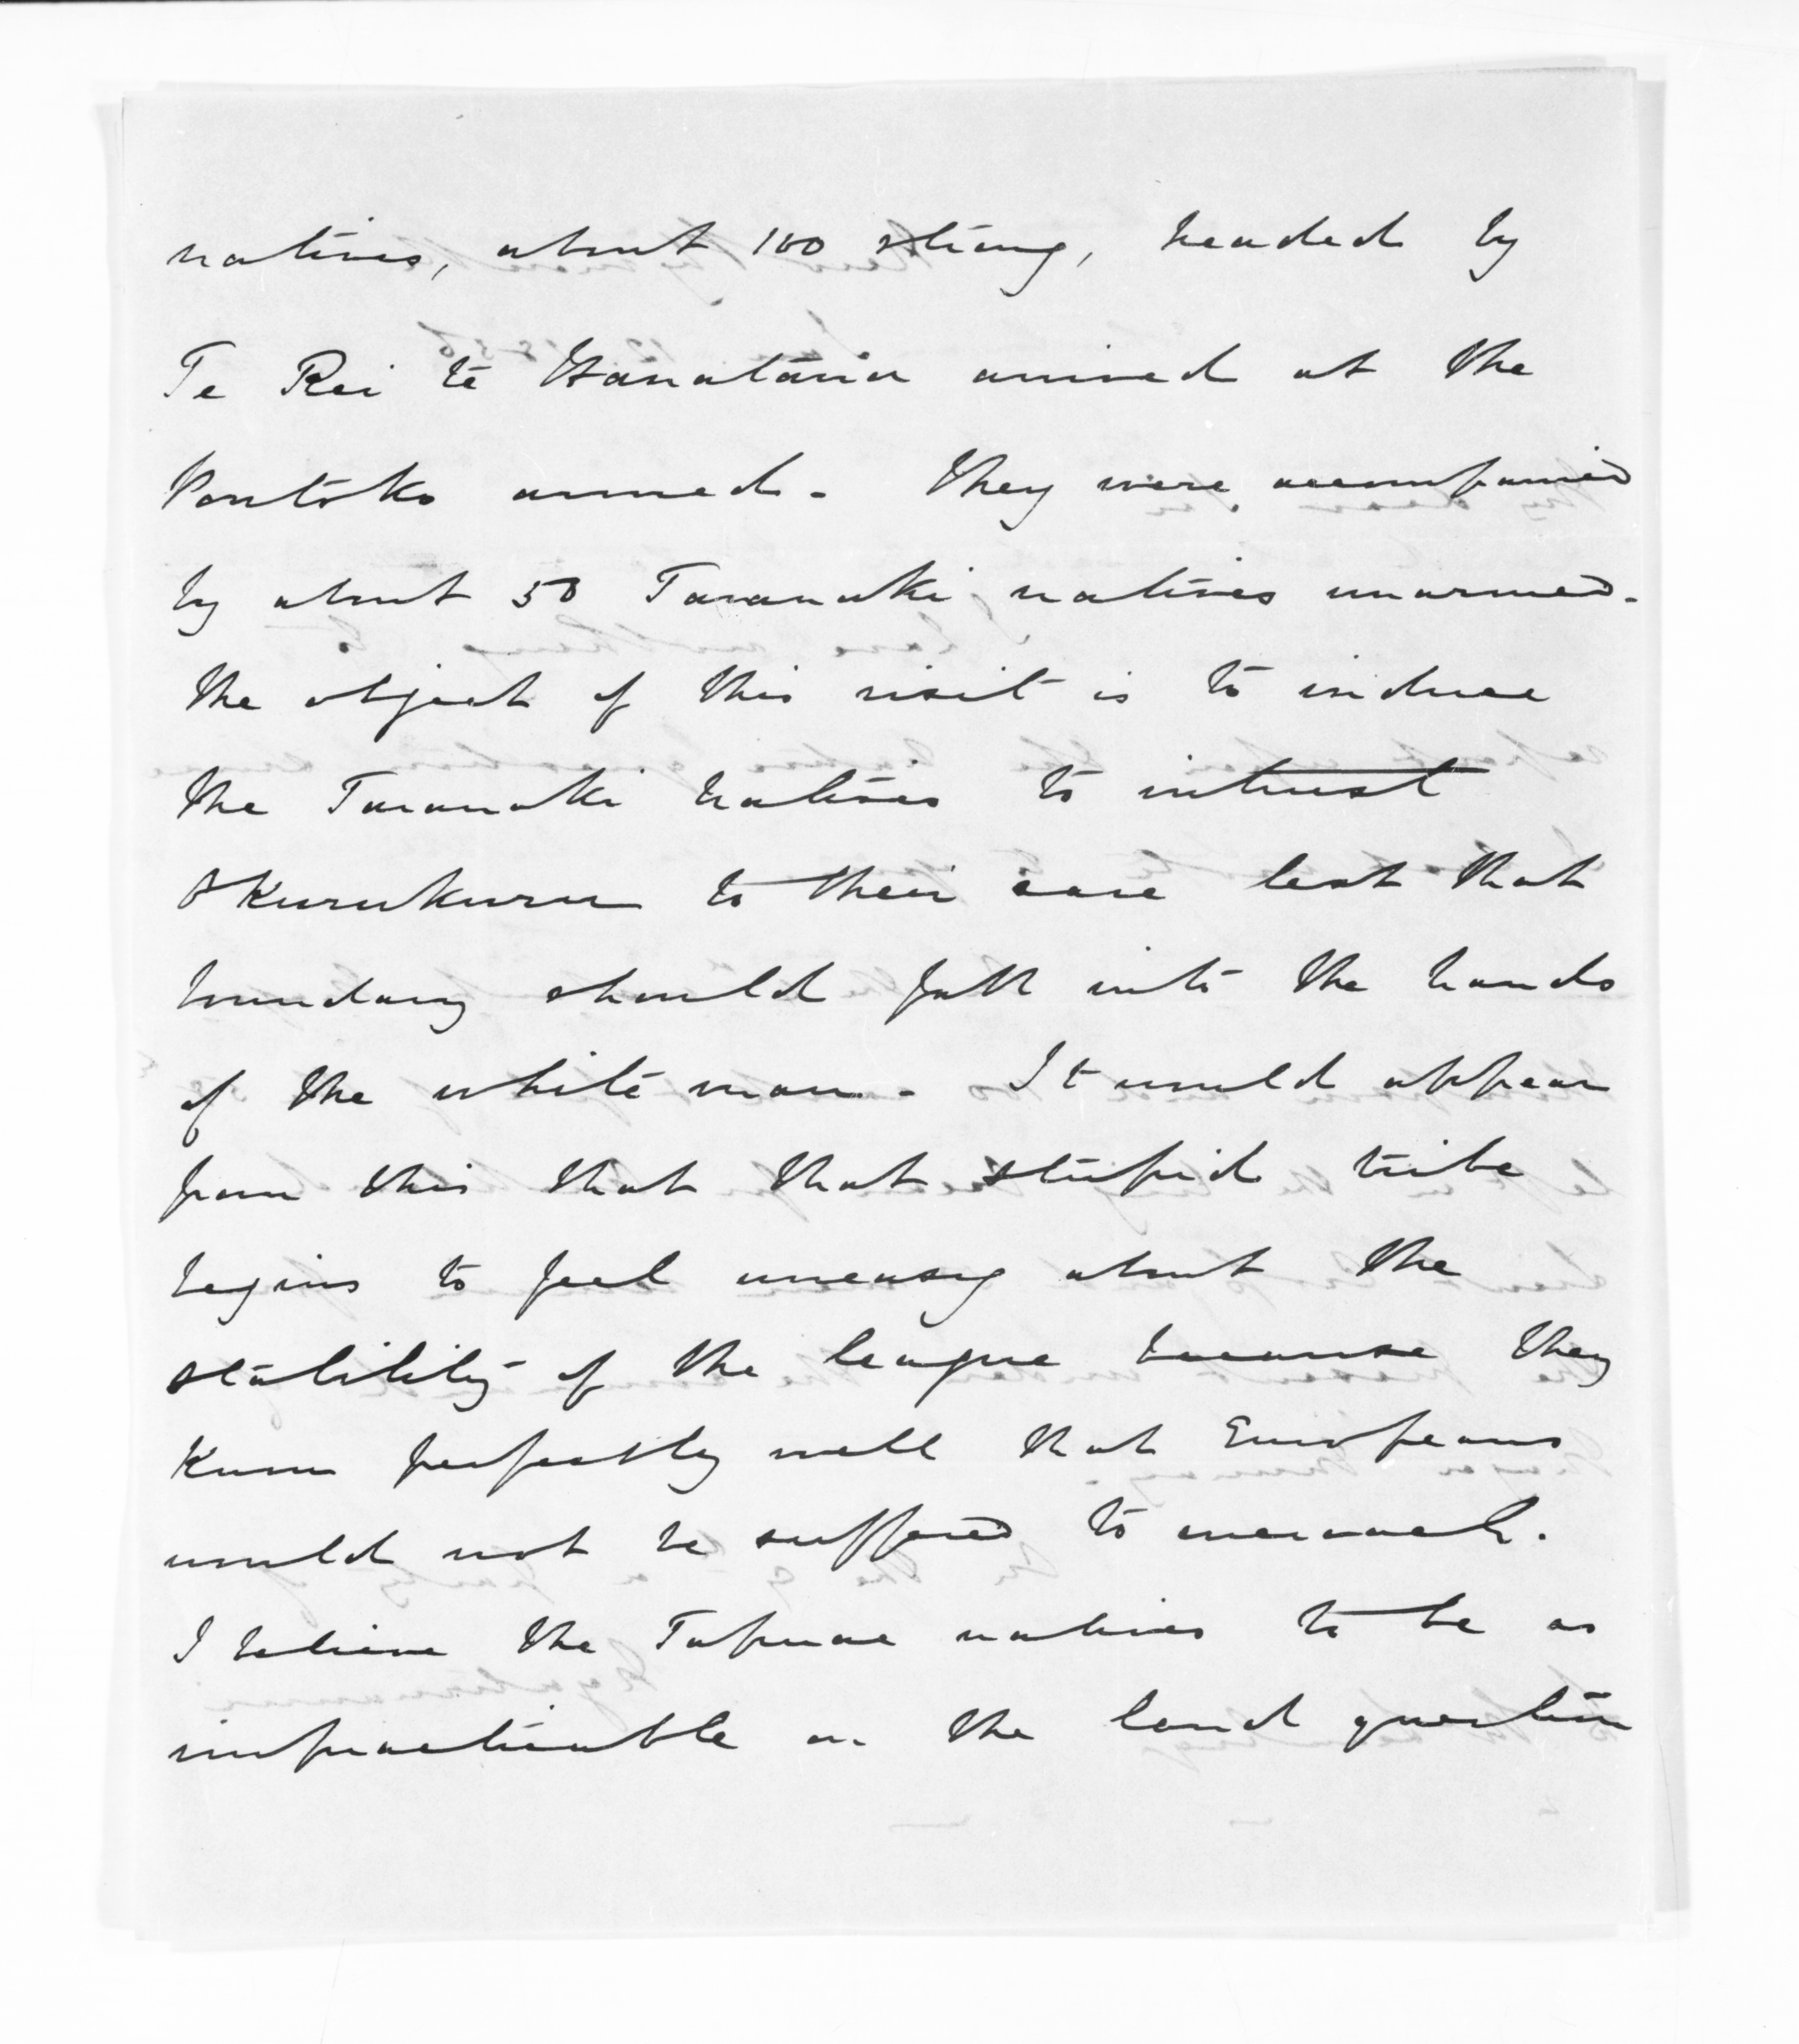 natives, about 100 strong, headed by
Te Rei te Hanataua arrived at the
Poutoko armed. They were accompanied
by about 50 Taranaki natives unarmed.
The object of this visit is to induce
the Taranaki natives to intrust
Okurukuru to their care lest that
boundary should fall into the hands
of the white man. It would appear
from this that that stupid tribe
begins to feel uneasy about the
stability of the league because they
know perfectly well that Europeans
would not be suffered to encroach.
I believe the Tapuae natives to be as
impracticable on the land question